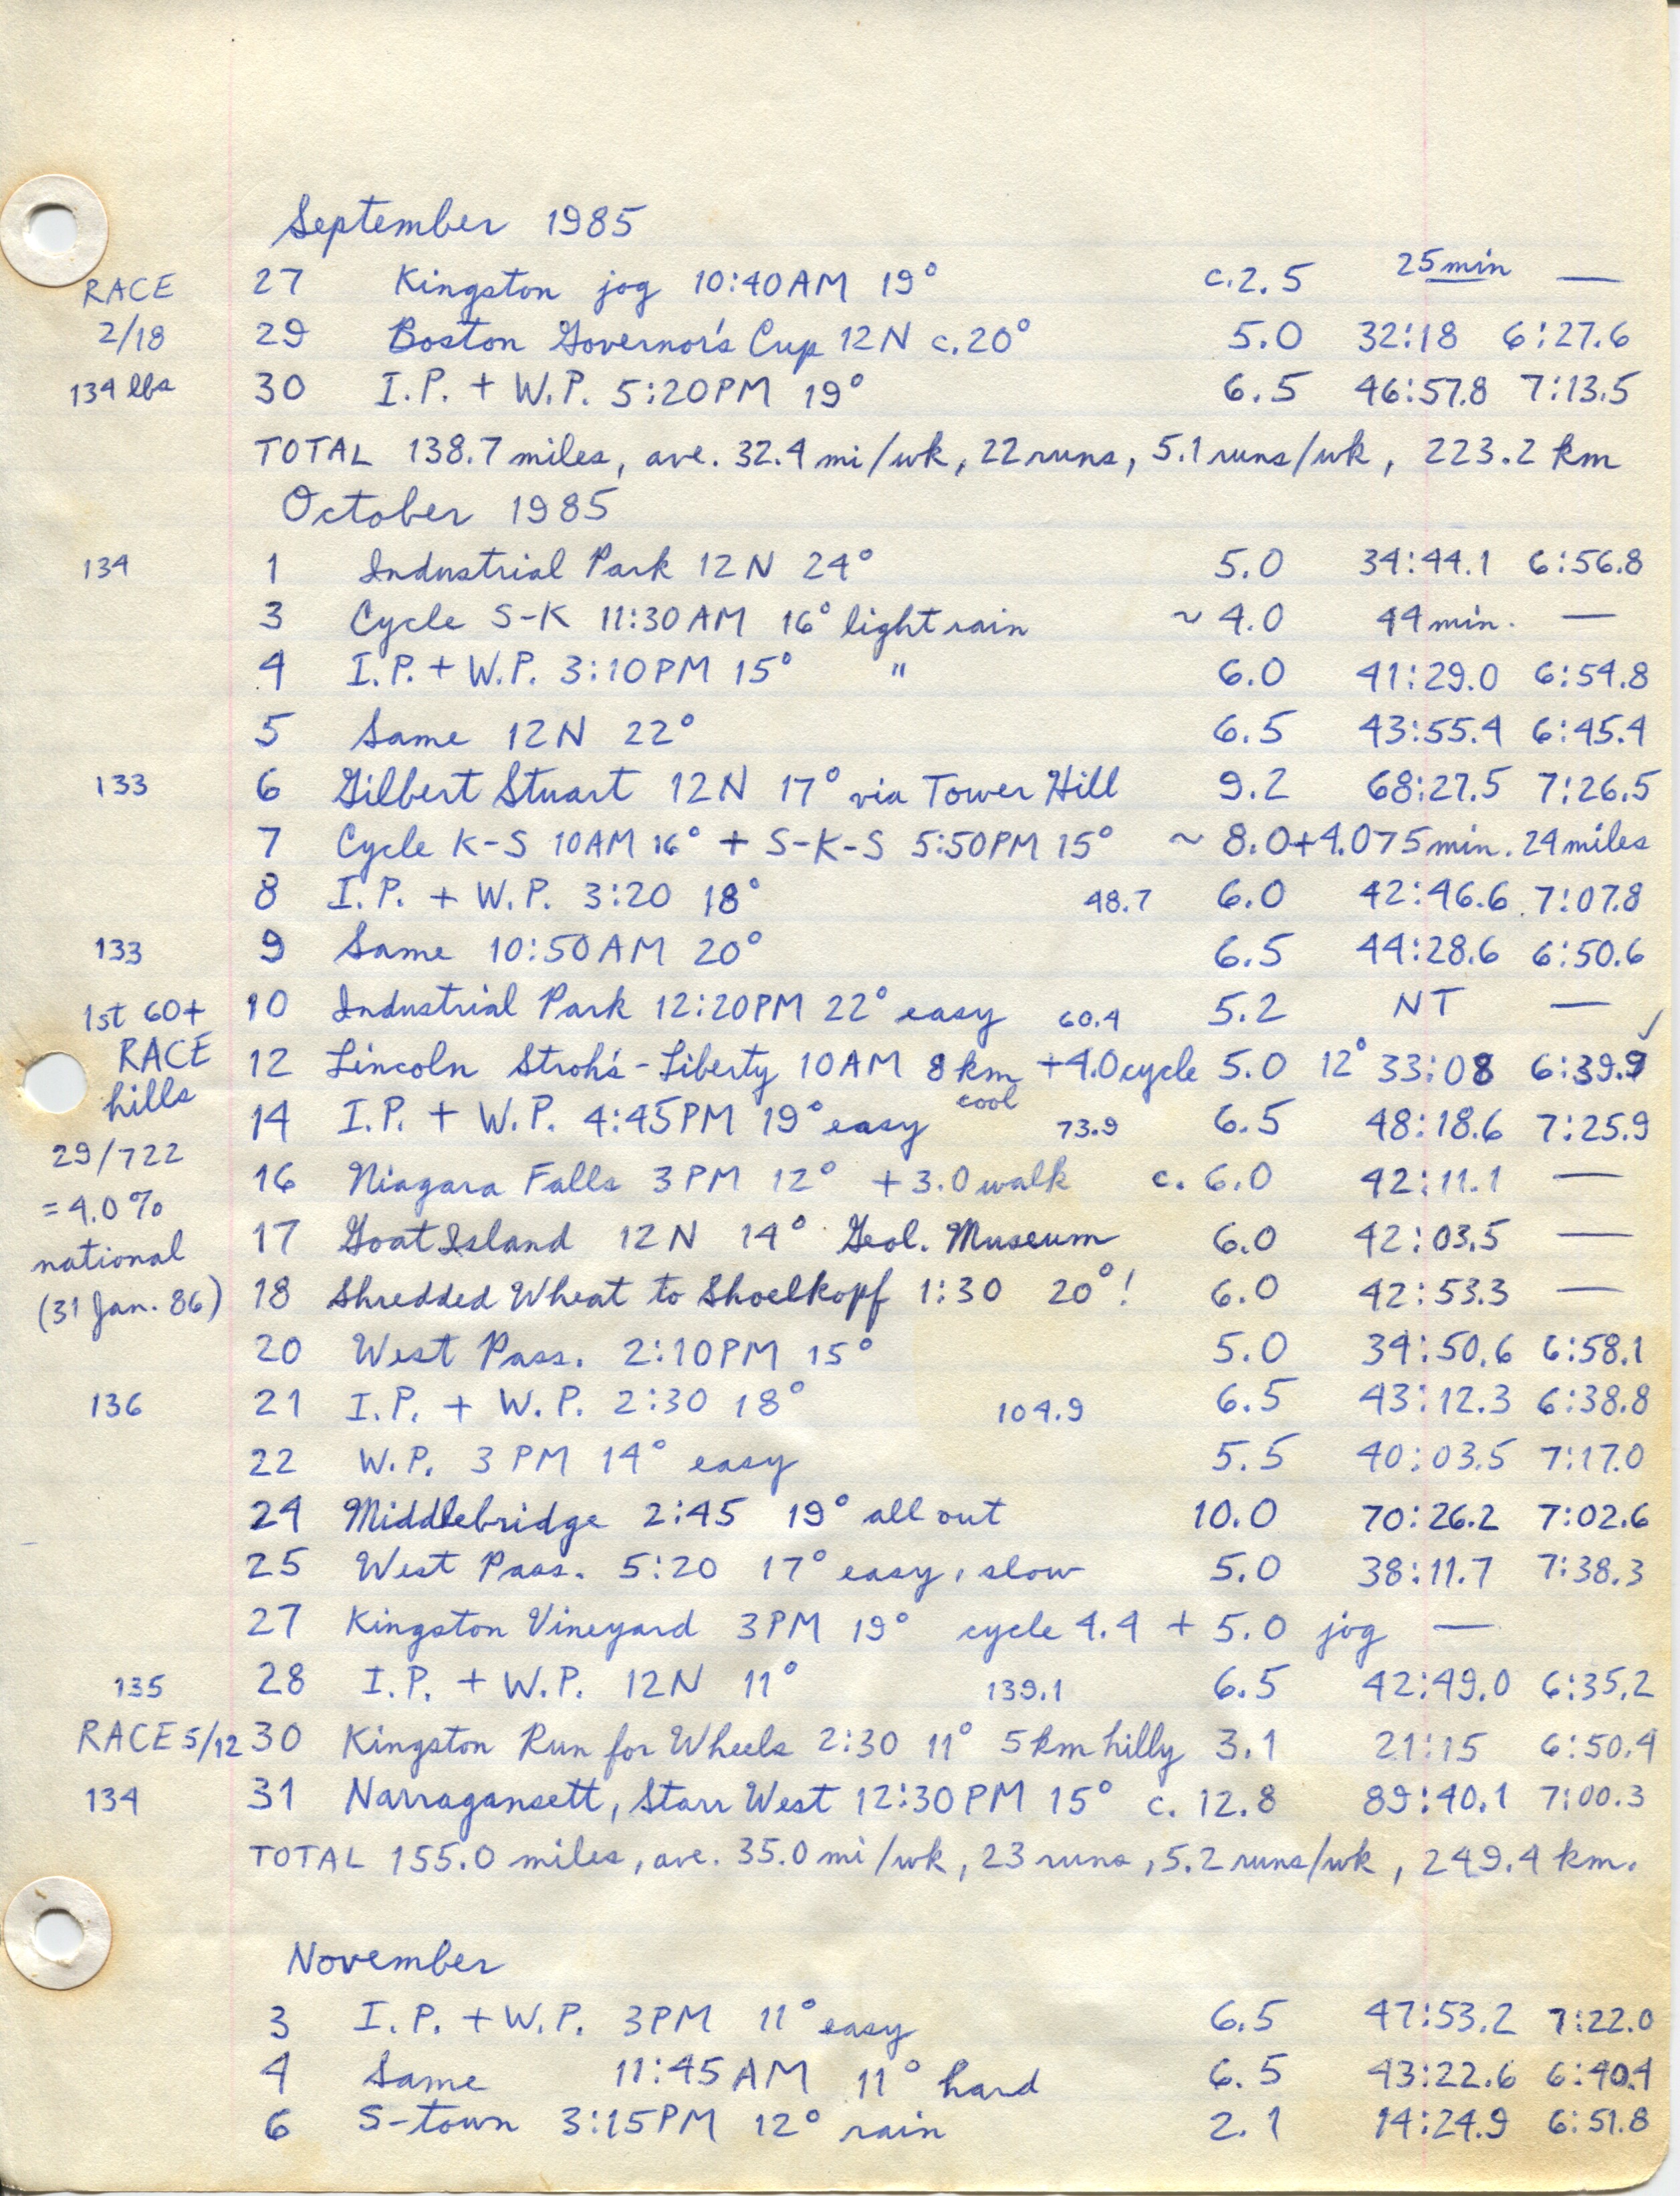 September 1985
RACE 27 Kingston jog 10:40AM 19° c.2.5 25min —
2/18 29 Boston Governor's Cup 12N c.20° 5.0 32:18 6:27.6
134 lbs 30 I.P. + W.P. 5:20PM 19° 6.5 46:57.8 7:13.5
TOTAL 138.7 miles, ave. 32.4 mi/wk, 22 runs, 5.1 runs/wk, 223.2 km
October 1985
134 1 Industrial Park 12N 24° 5.0 34:44.1 6:56.8
3 Cycle S-K 11:30AM 16° light rain ~4.0 44min. —
4 I.P. + W.P. 3:10PM 15° " 6.0 41:29.0 6:54.8
5 Same 12N 22° 6.5 43:55.4 6:45.4
133 6 Gilbert Stuart 12N 17° via Tower Hill 9.2 68:27.5 7:26.5
7 Cycle K-S 10AM 16° + S-K-S 5:50PM 15° ~ 8.0+4.0 75min. 24miles
8 I.P. + W.P. 3:20 18° 48.7 6.0 42:46.6 7:07.8
133 9 Same 10:50AM 20° 6.5 44:28.6 6:50.6
1st 60+ 10 Industrial Park 12:20PM 22° easy 60.4 5.2 NT —
RACE 12 Lincoln Stroh's-Liberty 10AM 8km +4.0cycle 5.0 12° 33:08 6:39.9 ✓
hills cool
14 I.P. + W.P. 4:45PM 19° easy 73.9 6.5 48:18.6 7:25.9
29/722
16 Niagara Falls 3PM 12° +3.0 walk c. 6.0 42:11.1 —
=4.0%
17 Goat Island 12N 14° Geol. Museum 6.0 42:03.5 —
national
(31 Jan. 86) 18 Shredded Wheat to Shoelkopf 1:30 20°! 6.0 42:53.3 —
20 West Pass. 2:10PM 15° 5.0 34:50.6 6:58.1
136 21 I.P. + W.P. 2:30 18° 104.9 6.5 43:12.3 6:38.8
22 W.P. 3PM 14° easy 5.5 40:03.5 7:17.0
24 Middlebridge 2:45 19° all out 10.0 70:26.2 7:02.6
25 West Pass. 5:20 17° easy, slow 5.0 38:11.7 7:38.3
27 Kingston Vineyard 3PM 19° cycle 4.4 + 5.0 jog —
135 28 I.P. + W.P. 12N 11° 139.1 6.5 42:49.0 6:35.2
RACE 5/12 30 Kingston Run for Wheels 2:30 11° 5km hilly 3.1 21:15 6:50.4
134 31 Narragansett, Starr West 12:30PM 15° c. 12.8 89:40.1 7:00.3
TOTAL 155.0 miles, ave. 35.0 mi/wk, 23 runs, 5.2 runs/wk, 249.4 km.
November
3 I.P. + W.P. 3PM 11° easy 6.5 47:53.2 7:22.0
4 Same 11:45AM 11° hard 6.5 43:22.6 6:40.4
6 S-town 3:15PM 12° rain 2.1 14:24.9 6:51.8